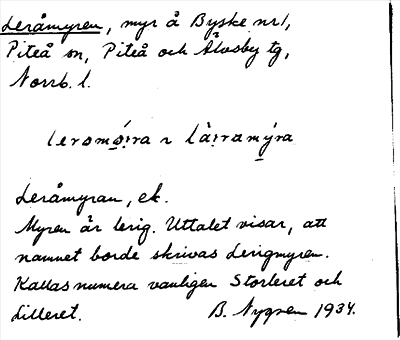 Leråmyren, myr å Byske nr 1,
Piteå sn, Piteå och Älvsby tg,
Norrb. l.
Leråmyran, ek.
Myren är lerig. Uttalet visar, att
namnet borde skrivas Lerigmyren.
Kallas numera vanligen Storleret och
Lilleret. B. Nygren 1934.